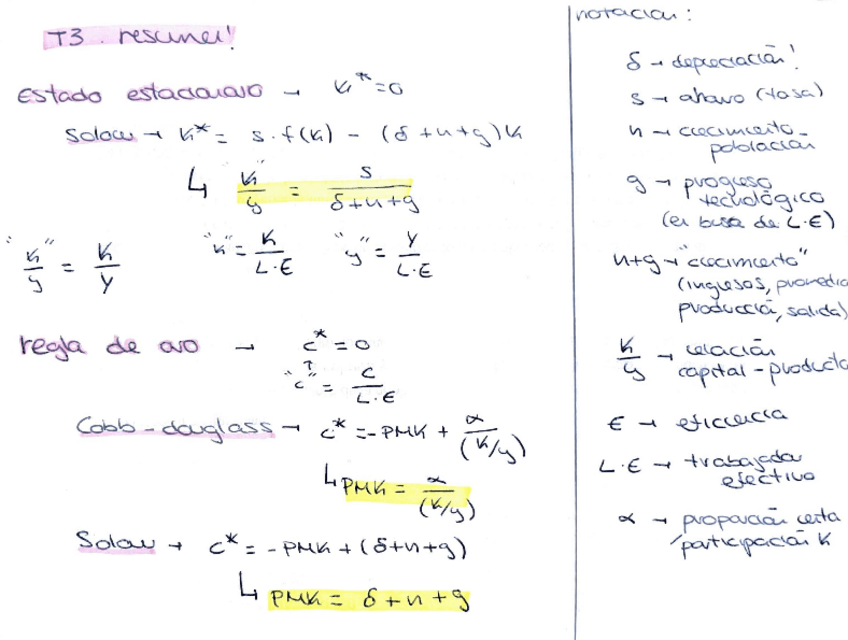 T3. resumen!
Estado estacionario → k* = 0
Solow → k* = s.f(k) - (δ+n+g)k
↳ "k"/y = s/(δ+n+g)
"k"/y = K/Y "k" = K/(L·E) "y" = Y/(L·E)
regla de oro → c* = 0
"c" = C/(L·E)
Cobb-douglass → c* = -PMK + α/(k/y)
↳ PMK = α/(k/y)
Solow → c* = -PMK + (δ+n+g)
↳ PMK = δ+n+g
notación:
δ → depreciación!
s → ahorro (tasa)
n → crecimiento
población
g → progreso
tecnológico
(en base de L·E)
n+g → "crecimiento"
(ingresos, promedio
producción, salida)
k/y → relación
capital-producto
E → eficiencia
L·E → trabajador
efectivo
α → proporción renta
/participación K